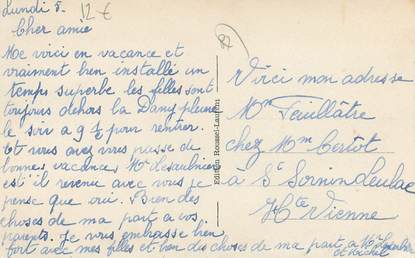 Lundi 5.
12 €
Cher amie
Me voici en vacance et
vraiment bien installé un
temps superbe les filles sont
toujours dehors la Dany pleure
le soir a 9 h ½ pour rentrer.
Et vous avez vous passe de
bonnes vacances Mr Lesaulnier
est'il revenu avec vous je
pense que oui. Bien des
choses de ma part a vos
parents. Je vous embrasse bien
fort avec mes filles et bien des choses de ma part a Mr Lesaulnier
et Michel
87
Edition Roussel-Laurent
Voici mon adresse
Mme Feuillâtre
chez Mme Certot
à St Sornin Leulac
Hte Vienne